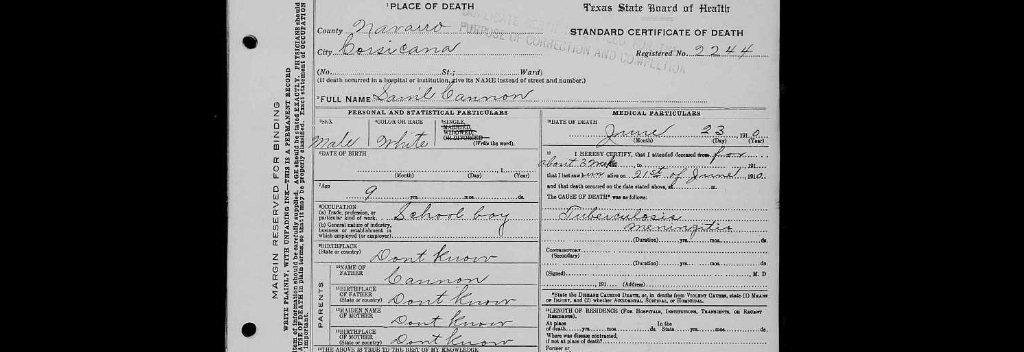 ¹PLACE OF DEATH
Texas State Board of Health
County Navarro
STANDARD CERTIFICATE OF DEATH
City Corsicana
Registered No. 2244
PURPOSE OF CORRECTION AND COMPLETION
(No. St.; Ward)
(If death occurred in a hospital or institution, give its NAME instead of street and number.)
²FULL NAME Saml Cannon
PERSONAL AND STATISTICAL PARTICULARS
³SEX
Male
⁴COLOR OR RACE
White
⁵SINGLE,
MARRIED,
WIDOWED
OR DIVORCED
(Write the word).
⁶DATE OF BIRTH
(Month) (Day) (Year)
⁷Age
9 yrs. mos. ds.
⁸OCCUPATION
(a) Trade, profession, or
particular kind of work. School boy
(b) General nature of industry,
business or establishment in
which employed (or employer).
⁹BIRTHPLACE
(State or country) Dont Know
PARENTS
¹⁰NAME OF
FATHER Cannon
¹¹BIRTHPLACE
OF FATHER
(State or country) Dont Know
¹²MAIDEN NAME
OF MOTHER Dont Know
¹³BIRTHPLACE
OF MOTHER
(State or country) Dont Know
¹⁴THE ABOVE IS TRUE TO THE BEST OF MY KNOWLEDGE
MEDICAL PARTICULARS
DATE OF DEATH
June 23 1910
(Month) (Day) (Year)
I HEREBY CERTIFY, that I attended deceased from for
about 3 wks to 191
that I last saw him alive on 21st of June 1910.
and that death occurred on the date stated above, at m.
The CAUSE OF DEATH* was as follows:
Tuberculosis
meningitis
(Duration) yrs. mos. ds.
CONTRIBUTORY
(Secondary)
(Duration) yrs. mos. ds.
(Signed) M. D
191 (Address)
*State the DISEASE CAUSING DEATH, or, in deaths from VIOLENT CAUSES, state (1) MEANS
OF INJURY, and (2) whether ACCIDENTAL, SUICIDAL, or HOMICIDAL.
LENGTH OF RESIDENCE (FOR HOSPITALS, INSTITUTIONS, TRANSIENTS, OR RECENT
RESIDENTS).
At place In the
of death yrs. mos. ds. State yrs. mos. ds.
Where was disease contracted,
if not at place of death?
Former or
MARGIN RESERVED FOR BINDING
WRITE PLAINLY, WITH UNFADING INK—THIS IS A PERMANENT RECORD
item of information should be carefully supplied. AGE should be stated EXACTLY. PHYSICIANS should
CAUSE OF DEATH in plain terms, so that it may be properly classified. Exact statement of OCCUPATION
important.